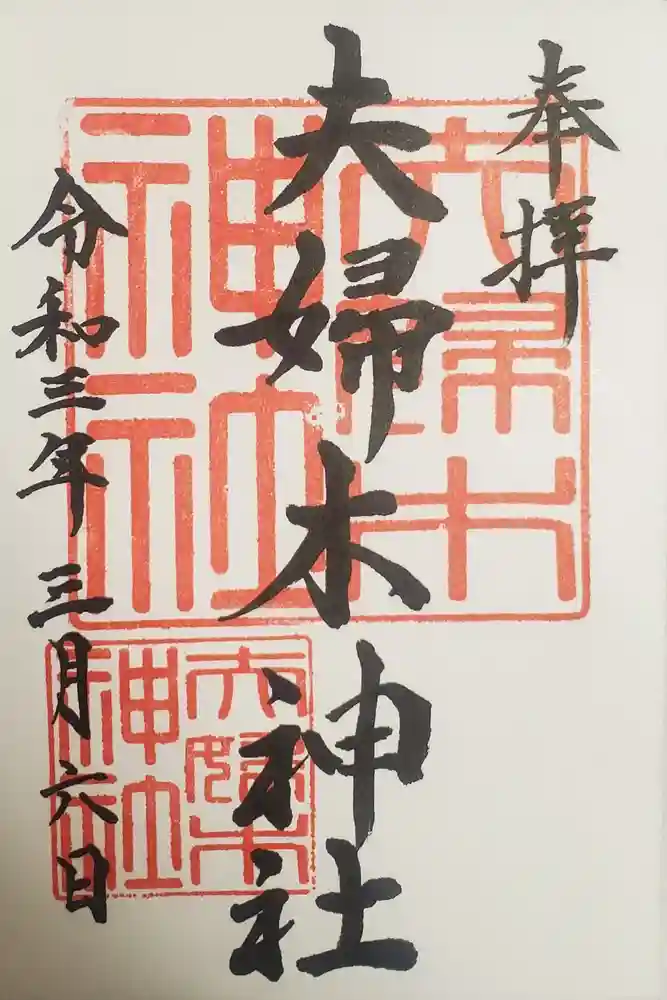 奉拝
夫婦木神社
令和三年三月六日
夫婦木
神社
夫婦木
神社